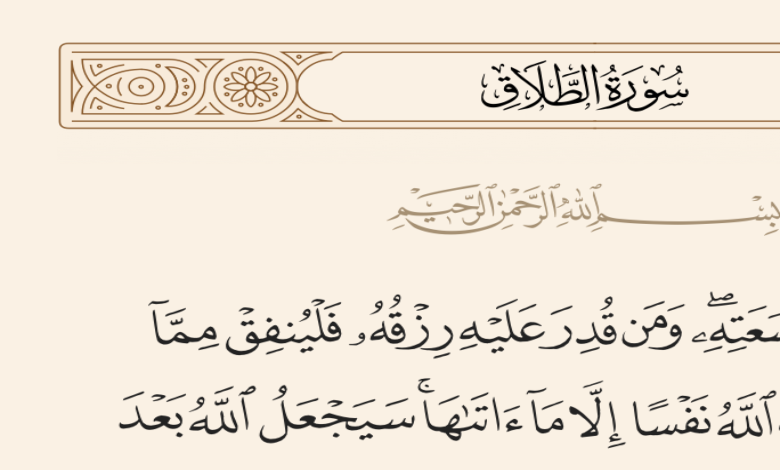 سُورَةُ الطَّلَاقِ
بِسْمِ ٱللَّهِ ٱلرَّحْمَٰنِ ٱلرَّحِيمِ
سَعَتِهِۦۖ وَمَن قُدِرَ عَلَيْهِ رِزْقُهُۥ فَلْيُنفِقْ مِمَّآ
ٱللَّهُ نَفْسًا إِلَّا مَآ ءَاتَىٰهَاۚ سَيَجْعَلُ ٱللَّهُ بَعْدَ